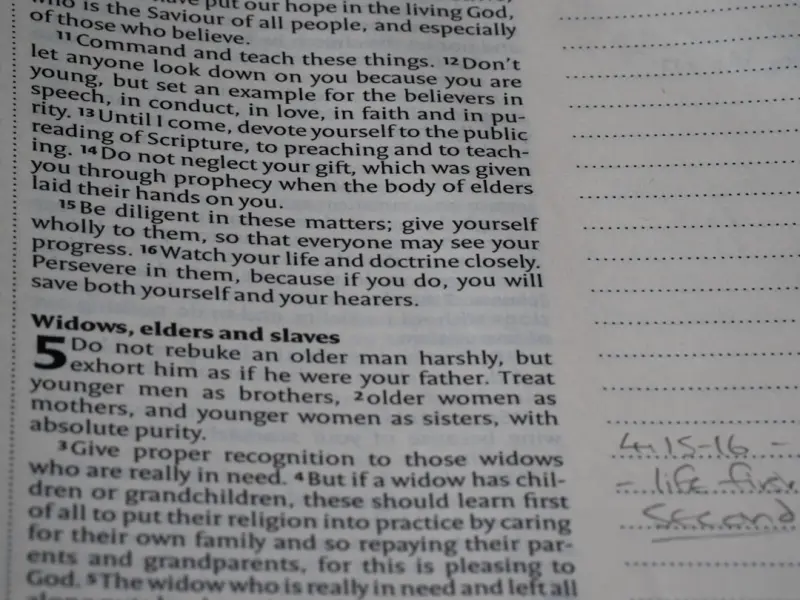 put our hope in the living God,
who is the Saviour of all people, and especially
of those who believe.
11 Command and teach these things. 12 Don't
let anyone look down on you because you are
young, but set an example for the believers in
speech, in conduct, in love, in faith and in pu-
rity. 13 Until I come, devote yourself to the public
reading of Scripture, to preaching and to teach-
ing. 14 Do not neglect your gift, which was given
you through prophecy when the body of elders
laid their hands on you.
15 Be diligent in these matters; give yourself
wholly to them, so that everyone may see your
progress. 16 Watch your life and doctrine closely.
Persevere in them, because if you do, you will
save both yourself and your hearers.
Widows, elders and slaves
5 Do not rebuke an older man harshly, but
exhort him as if he were your father. Treat
younger men as brothers, 2 older women as
mothers, and younger women as sisters, with
absolute purity.
3 Give proper recognition to those widows
who are really in need. 4 But if a widow has chil-
dren or grandchildren, these should learn first
of all to put their religion into practice by caring
for their own family and so repaying their par-
ents and grandparents, for this is pleasing to
God. 5 The widow who is really in need and left all
4:15-16 -
- life first
second